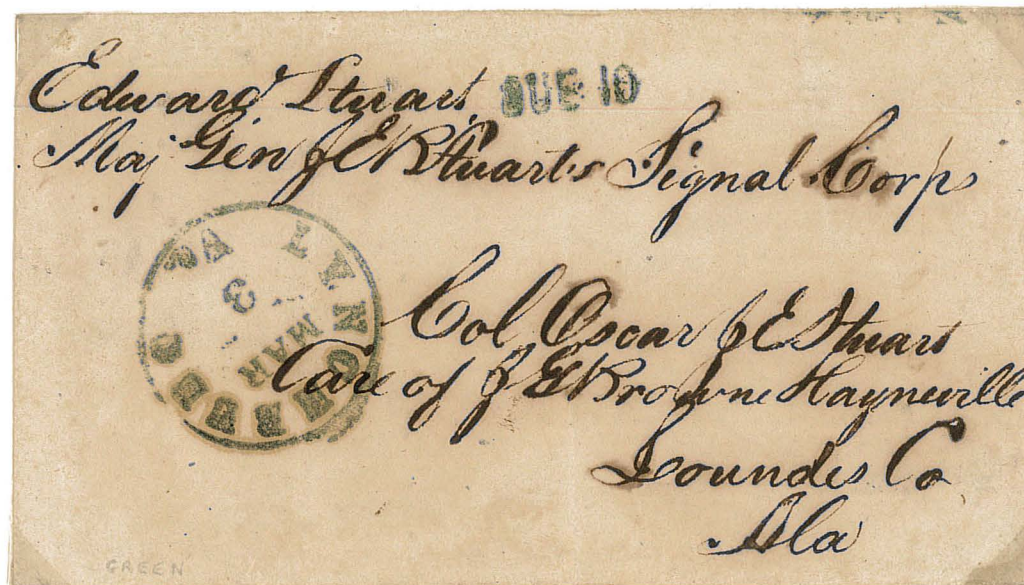 Edward Stuart DUE 10
Maj Gen J E B Stuart's Signal Corps
LYNCHBURG VA
MAR
3
Col Oscar J E Stuart
Care of J G Browne Hayneville
Loundes Co
Ala
GREEN